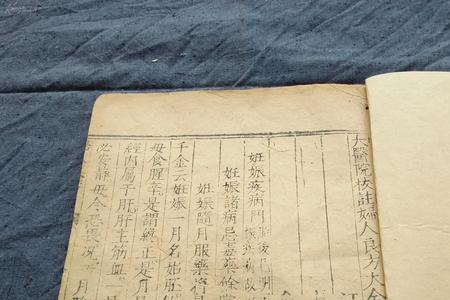 大醫院校註婦人良方大
妊娠疾病門
妊娠諸病忌毒藥條
妊娠隨月服藥將
千金云妊娠一月名始胚
毋食腥辛是謂終正是月
經內屬于肝肝主筋血
必安靜毋令恐畏 月